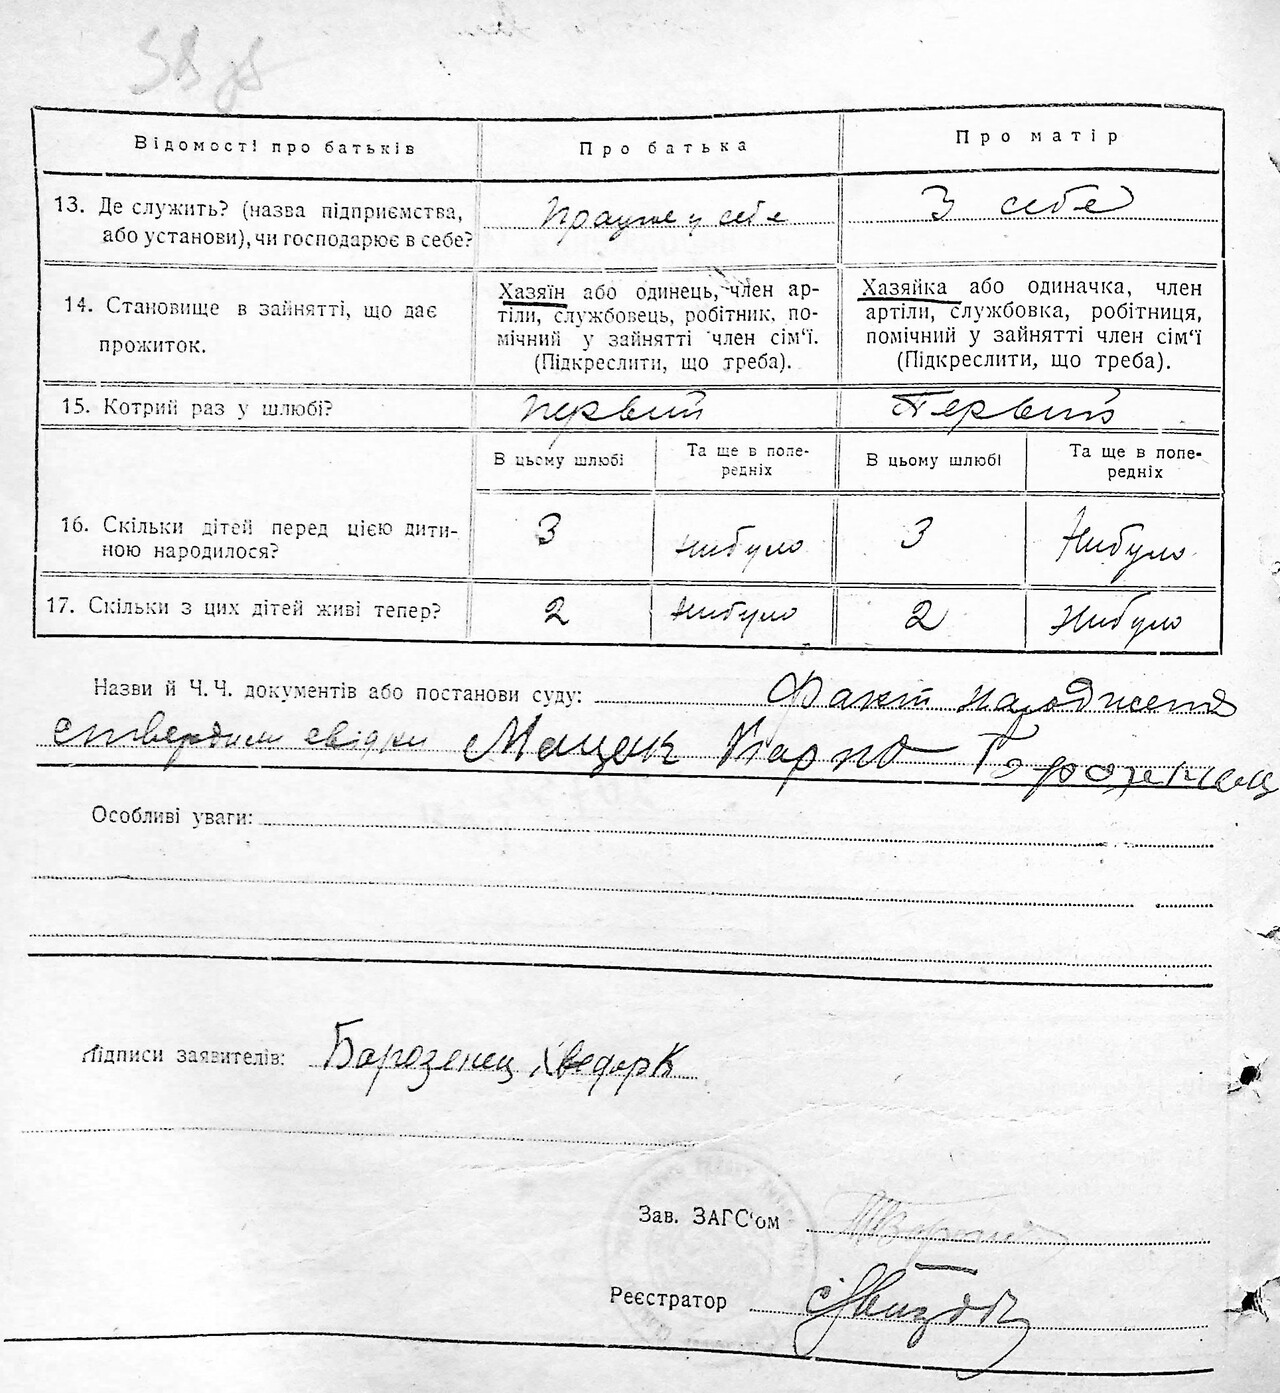 38 зв
Відомості про батьків
Про батька
Про матір
13. Де служить? (назва підприємства, або установи), чи господарює в себе?
працює у себе
З себе
14. Становище в зайнятті, що дає прожиток.
Хазяїн або одинець, член ар-
тіли, службовець, робітник, по-
мічний у зайнятті член сім'ї.
(Підкреслити, що треба).
Хазяйка або одиначка, член
артіли, службовка, робітниця,
помічний у зайнятті член сім'ї
(Підкреслити, що треба).
15. Котрий раз у шлюбі?
первий
Первий
В цьому шлюбі
Та ще в попе-
редніх
В цьому шлюбі
Та ще в попе-
редніх
16. Скільки дітей перед цією дити-
ною народилося?
3
нибуло
3
Нибуло
17. Скільки з цих дітей живі тепер?
2
нибуло
2
Нибуло
Назви й Ч.Ч. документів або постанови суду: Факт народження
ствердили свідки Мацак Карпо
Особливі уваги:
Підписи заявителів: Борозенец Хведорк
Зав. ЗАГС'ом
Реєстратор